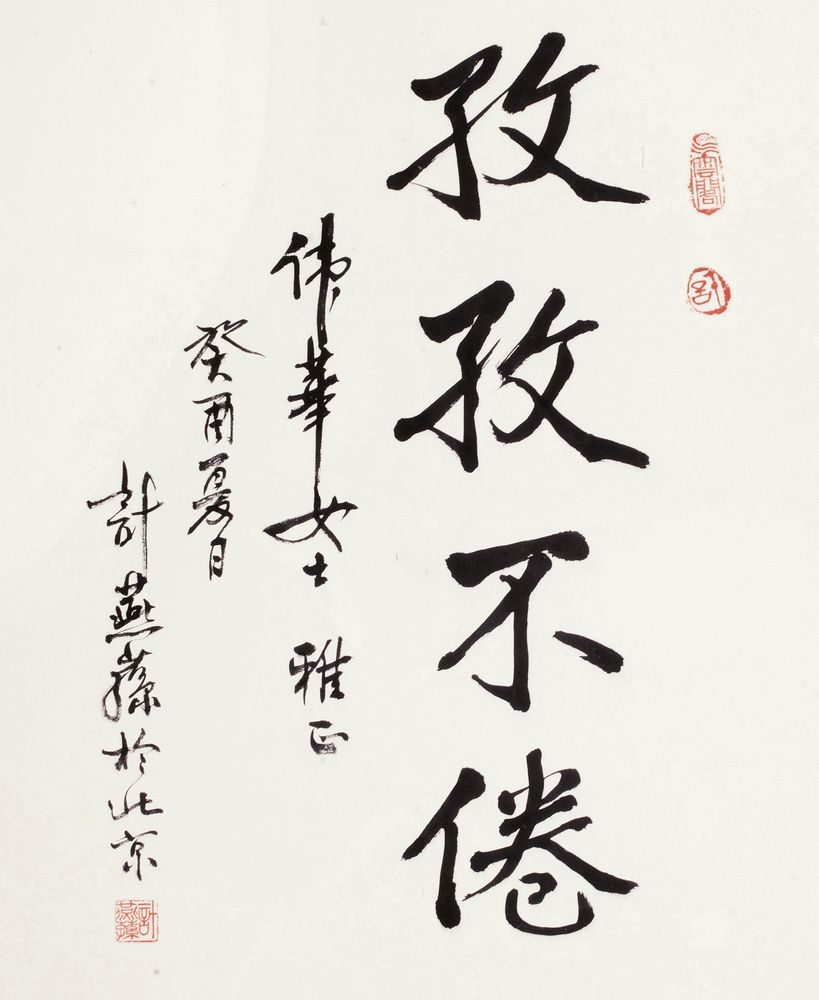 孜孜不倦
伟華女士 雅正
癸酉夏日
計燕蓀於北京
計